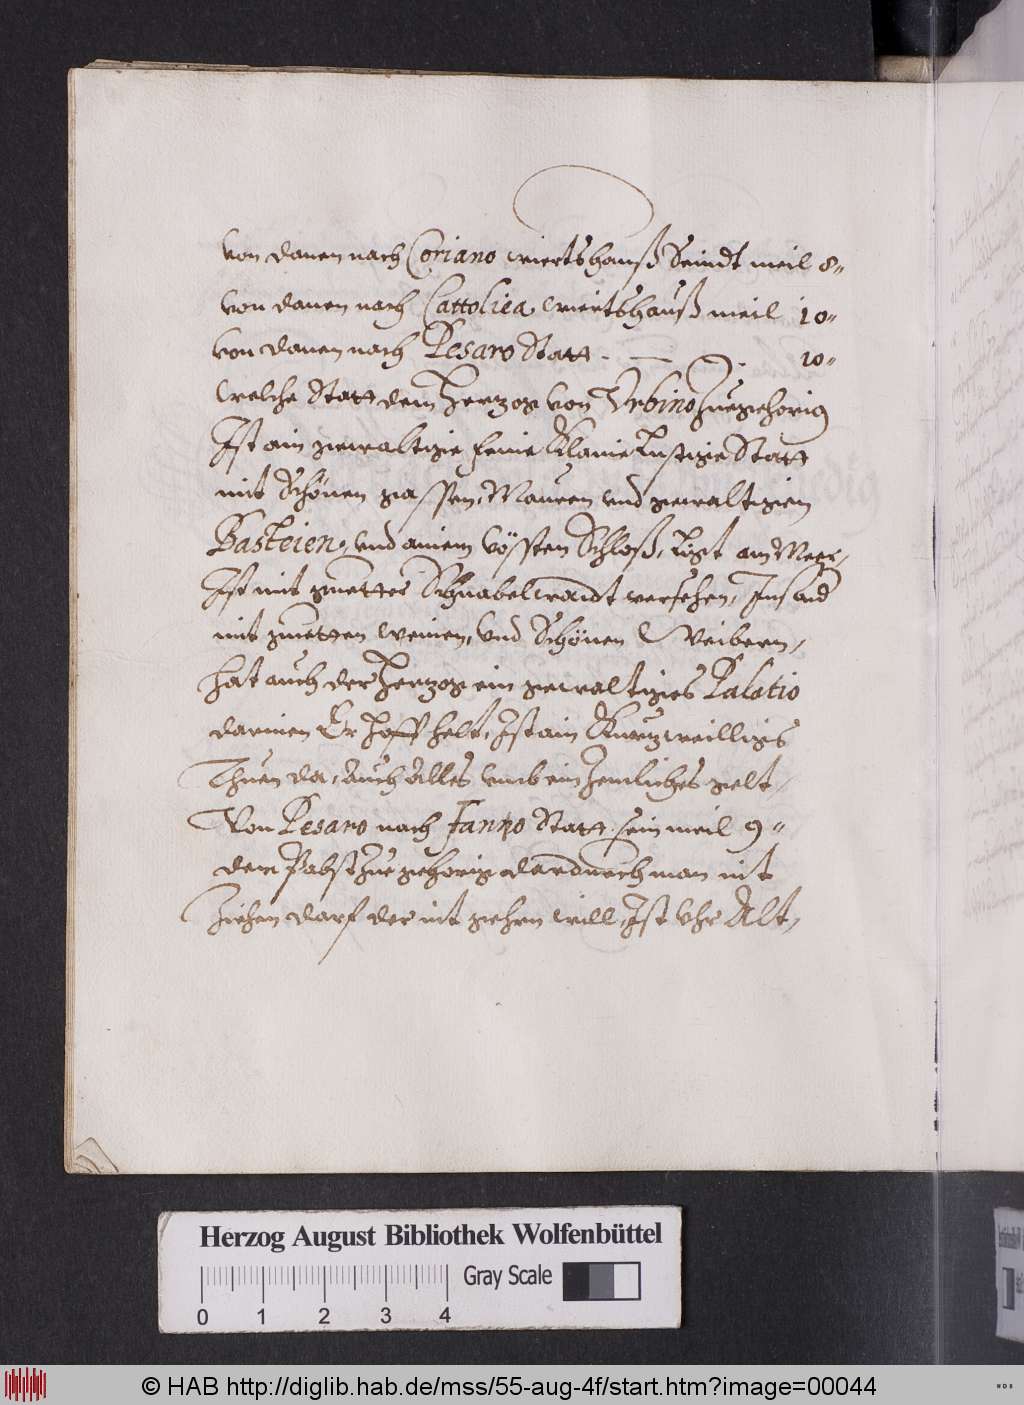 von danen nach Coriano wiertshauß Seindt meil 8"
von danen nach Cattolica, wiertshauß meil 10"
von danen nach Pesaro Statt - — - 10"
welche Statt dem Hertzog von Urbino zuegehorig
Ist ain gewaltige feine Klaine Lustige Statt
mit Schönen gassen, Mauren und gewaltigen
Basteien, und ainem vössten Schloß, Ligt am Meer,
Ist mit guettes Schnabelwaidt versehen,
mit guetten weinen, und Schönen Weibern,
hat auch der Hertzog ein gewaltiges Palatio
darinen Er Hoff helt, Ist ain Kurtzweilligis
Thuen da, Auch Alles umb ein Zemliches gelt,
Von Pesaro nach Fanno Statt sein meil 9"
dem Pabst zuegehorig dardurch man nit
Ziehen darf der nit gehrn will, Ist Uhr Alt,
Herzog August Bibliothek Wolfenbüttel
Gray Scale
0 1 2 3 4
© HAB http://diglib.hab.de/mss/55-aug-4f/start.htm?image=00044